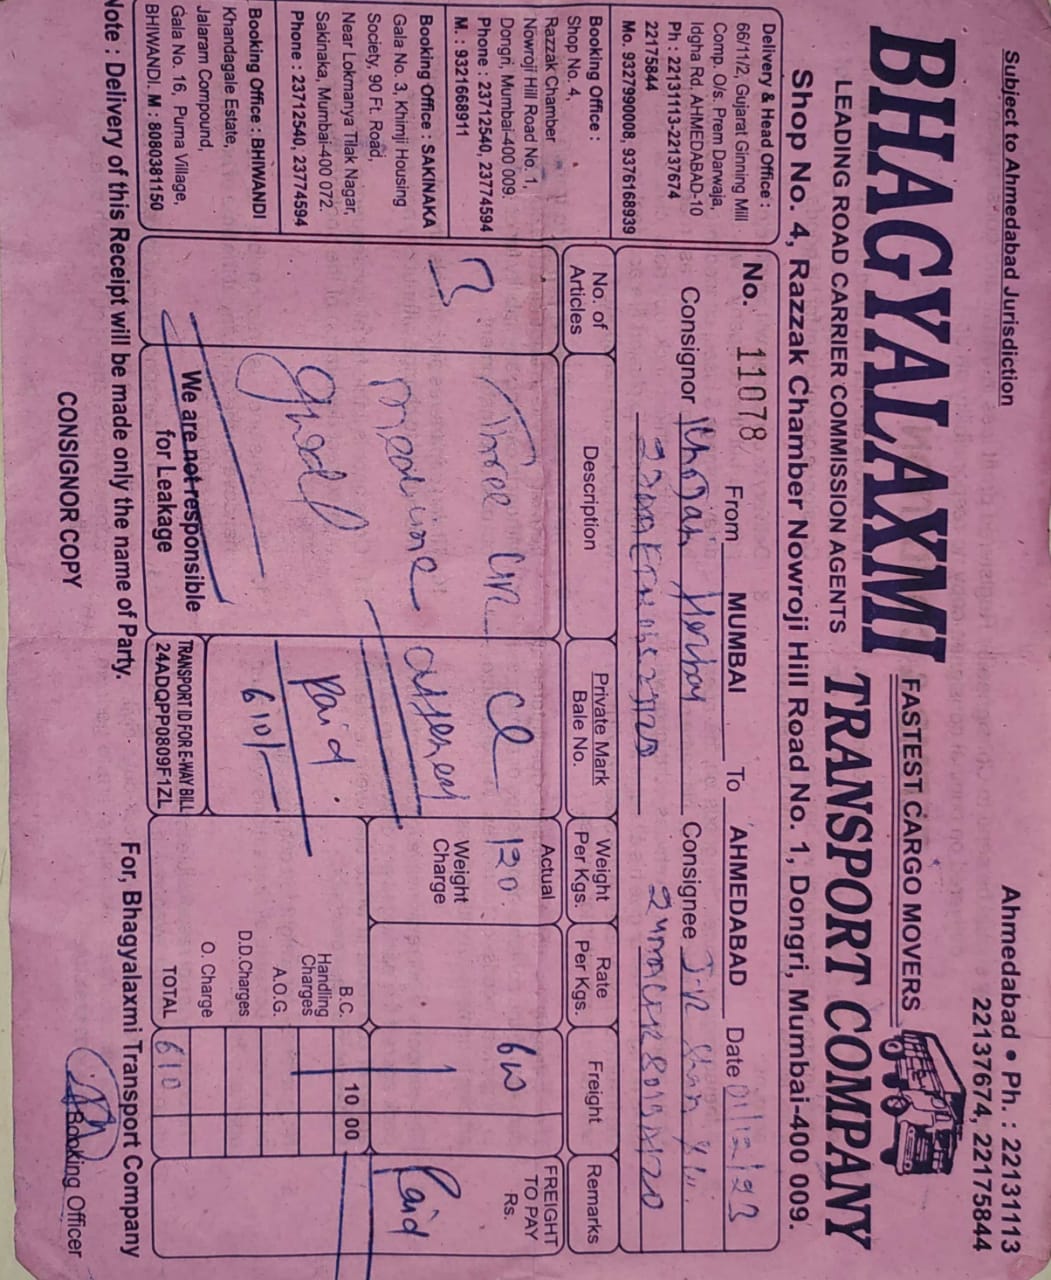 Subject to Ahmedabad Jurisdiction
Ahmedabad • Ph. : 22131113
22137674, 22175844
FASTEST CARGO MOVERS
BHAGYALAXMI TRANSPORT COMPANY
LEADING ROAD CARRIER COMMISSION AGENTS
Shop No. 4, Razzak Chamber Nowroji Hill Road No. 1, Dongri, Mumbai-400 009.
Delivery & Head Office :
66/11/2, Gujarat Ginning Mill
Comp. O/s. Prem Darwaja,
Idgha Rd. AHMEDABAD-10
Ph : 22131113-22137674
22175844
Mo. 9327990008, 9376168939
Booking Office :
Shop No. 4,
Razzak Chamber
Nowroji Hill Road No. 1,
Dongri, Mumbai-400 009.
Phone : 23712540, 23774594
M. : 9321668911
Booking Office : SAKINAKA
Gala No. 3, Khimji Housing
Society, 90 Ft. Road,
Near Lokmanya Tilak Nagar,
Sakinaka, Mumbai-400 072.
Phone : 23712540, 23774594
Booking Office : BHIWANDI
Khandagale Estate,
Jalaram Compound,
Gala No. 16, Purna Village,
BHIWANDI. M : 8080381150
No. 11078 From MUMBAI To AHMEDABAD Date 01/12/23
Consignor Consignee
No. of Articles Description Private Mark Bale No. Weight Per Kgs. Rate Per Kgs. Freight Remarks
3 Three Actual 120 FREIGHT TO PAY Rs.
medicine Weight Charge Paid
Paid B.C. 10 00
610/- Handling Charges
A.O.G.
D.D.Charges
O. Charge
TOTAL 610
We are not responsible
for Leakage
TRANSPORT ID FOR E-WAY BILL
24ADQPP0809F1ZL
Note : Delivery of this Receipt will be made only the name of Party.
For, Bhagyalaxmi Transport Company
CONSIGNOR COPY
Booking Officer